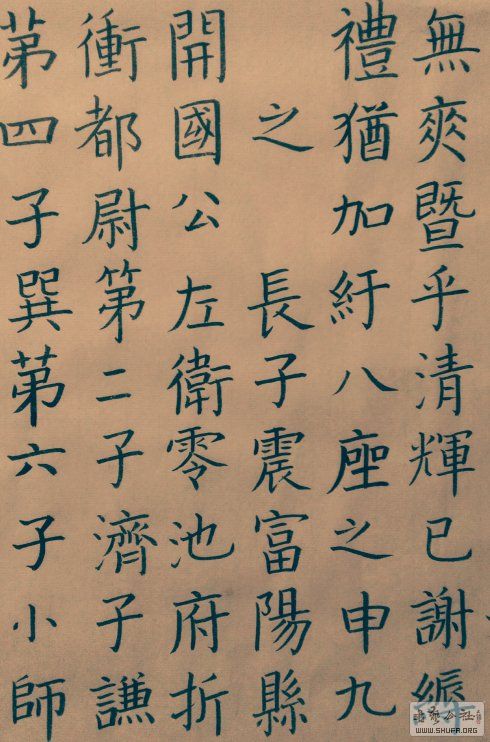 無爽暨乎清輝已謝縟
禮猶加紆八座之申九
之 長子震富陽縣
開國公左衛零池府折
衝都尉第二子濟子謙
第四子巽第六子小師
WWW.SHUFA.ORG